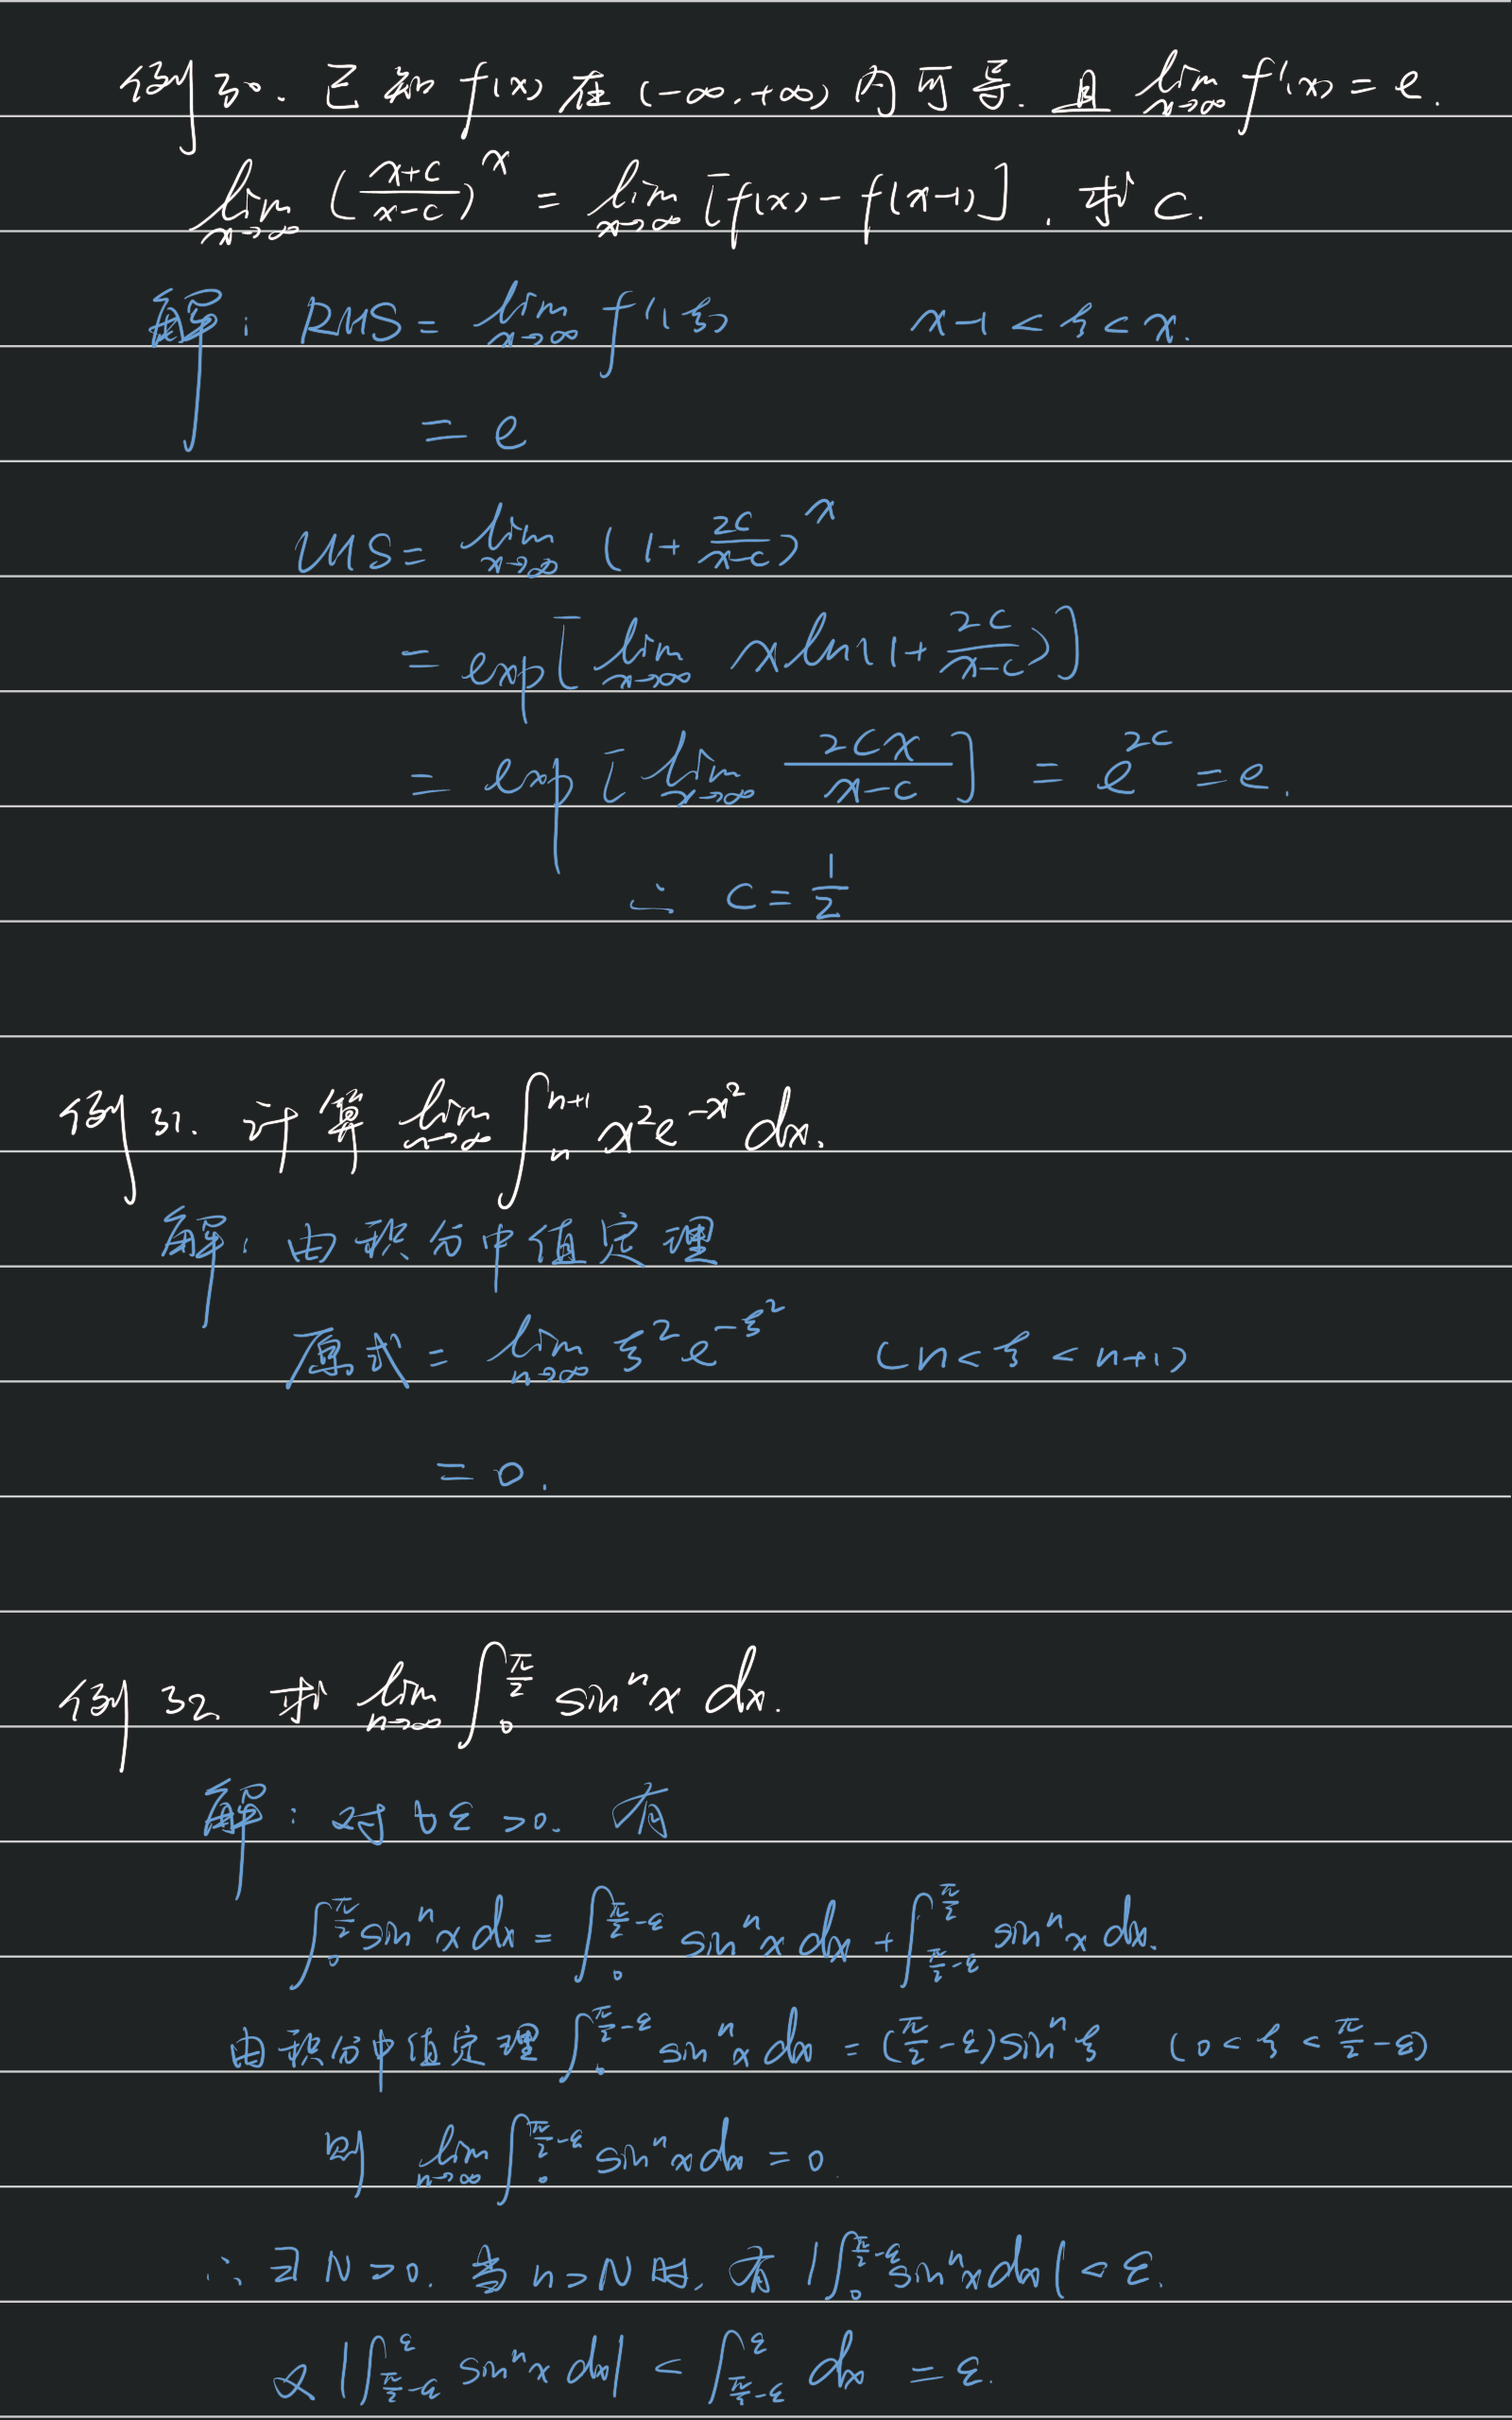 例30. 已知 f(x) 在 (-∞,+∞) 内可导. 且 lim_{x→∞} f'(x) = e.
lim_{x→∞} (\frac{x+c}{x-c})^x = lim_{x→∞} [f(x) - f(x-1)]. 求 c.
解: RHS = lim_{x→∞} f'(ξ)    x-1 < ξ < x.
= e
LHS = lim_{x→∞} (1 + \frac{2c}{x-c})^x
= exp[lim_{x→∞} x ln(1 + \frac{2c}{x-c})]
= exp[lim_{x→∞} \frac{2cx}{x-c}] = e^{2c} = e.
∴ c = \frac{1}{2}
例31. 计算 lim_{n→∞} ∫_n^{n+1} x^2 e^{-x^2} dx.
解: 由积分中值定理
原式 = lim_{n→∞} ξ^2 e^{-ξ^2}    (n < ξ < n+1)
= 0.
例32. 求 lim_{n→∞} ∫_0^{\frac{π}{2}} sin^n x dx.
解: 对∀ε>0. 有
∫_0^{\frac{π}{2}} sin^n x dx = ∫_0^{\frac{π}{2}-ε} sin^n x dx + ∫_{\frac{π}{2}-ε}^{\frac{π}{2}} sin^n x dx.
由积分中值定理 ∫_0^{\frac{π}{2}-ε} sin^n x dx = (\frac{π}{2}-ε) sin^n ξ    (0 < ξ < \frac{π}{2}-ε)
则 lim_{n→∞} ∫_0^{\frac{π}{2}-ε} sin^n x dx = 0.
∴ ∃N>0. 当 n>N 时, 有 |∫_0^{\frac{π}{2}-ε} sin^n x dx| < ε.
又 |∫_{\frac{π}{2}-ε}^{ε} sin^n x dx| < ∫_{\frac{π}{2}-ε}^{ε} dx = ε.